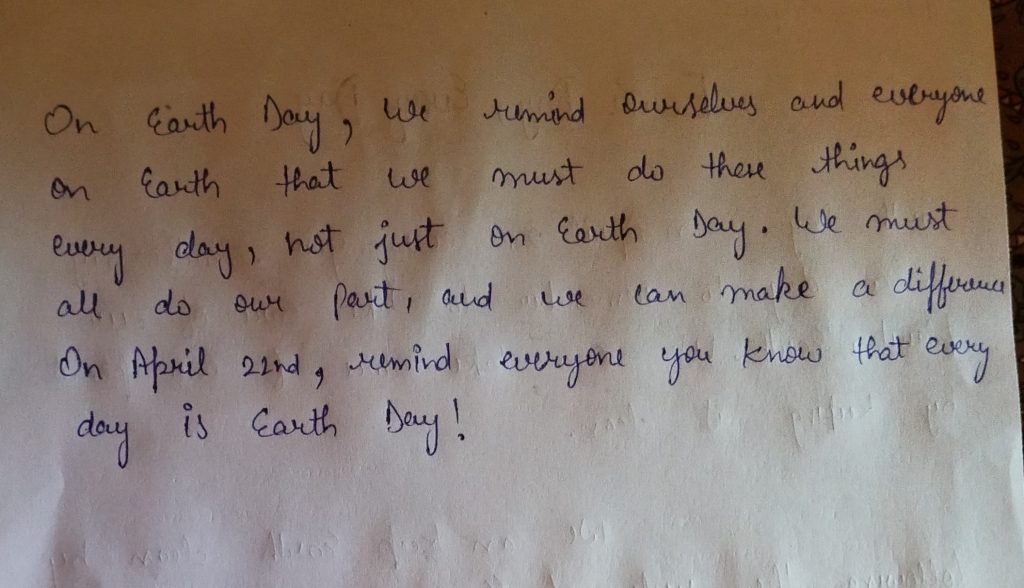 On Earth Day, we remind ourselves and everyone
on Earth that we must do these things
every day, not just on Earth Day. We must
all do our part, and we can make a difference
On April 22nd, remind everyone you know that every
day is Earth Day!